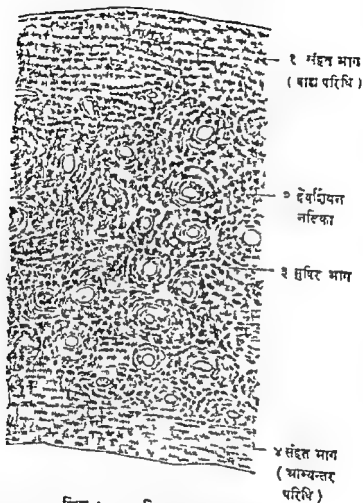 १ संहत भाग
(बाह्य परिधि)
२ हैवर्शियन
नलिका
३ सुषिर भाग
४ संहत भाग
(आभ्यन्तर
परिधि)